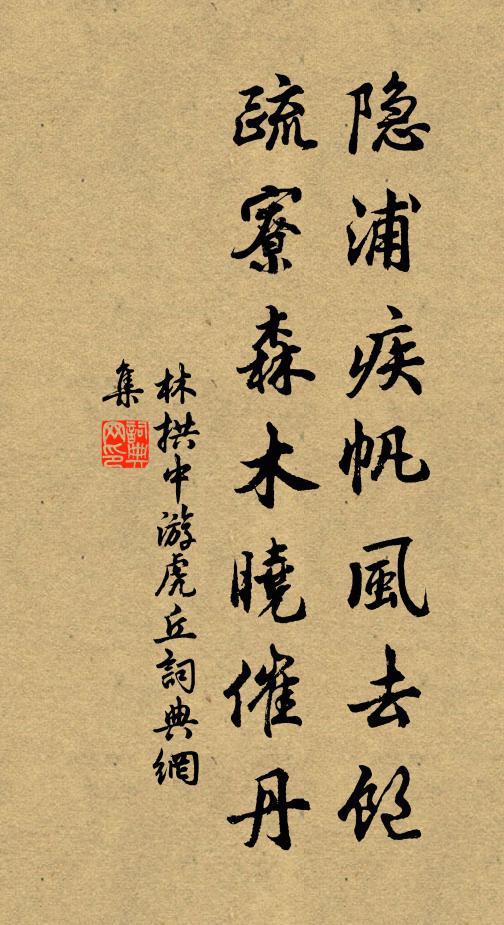 隐浦疾帆風去飽
疏寮森木曉催丹
林拱中游虎丘詞典網
集
詞典網印